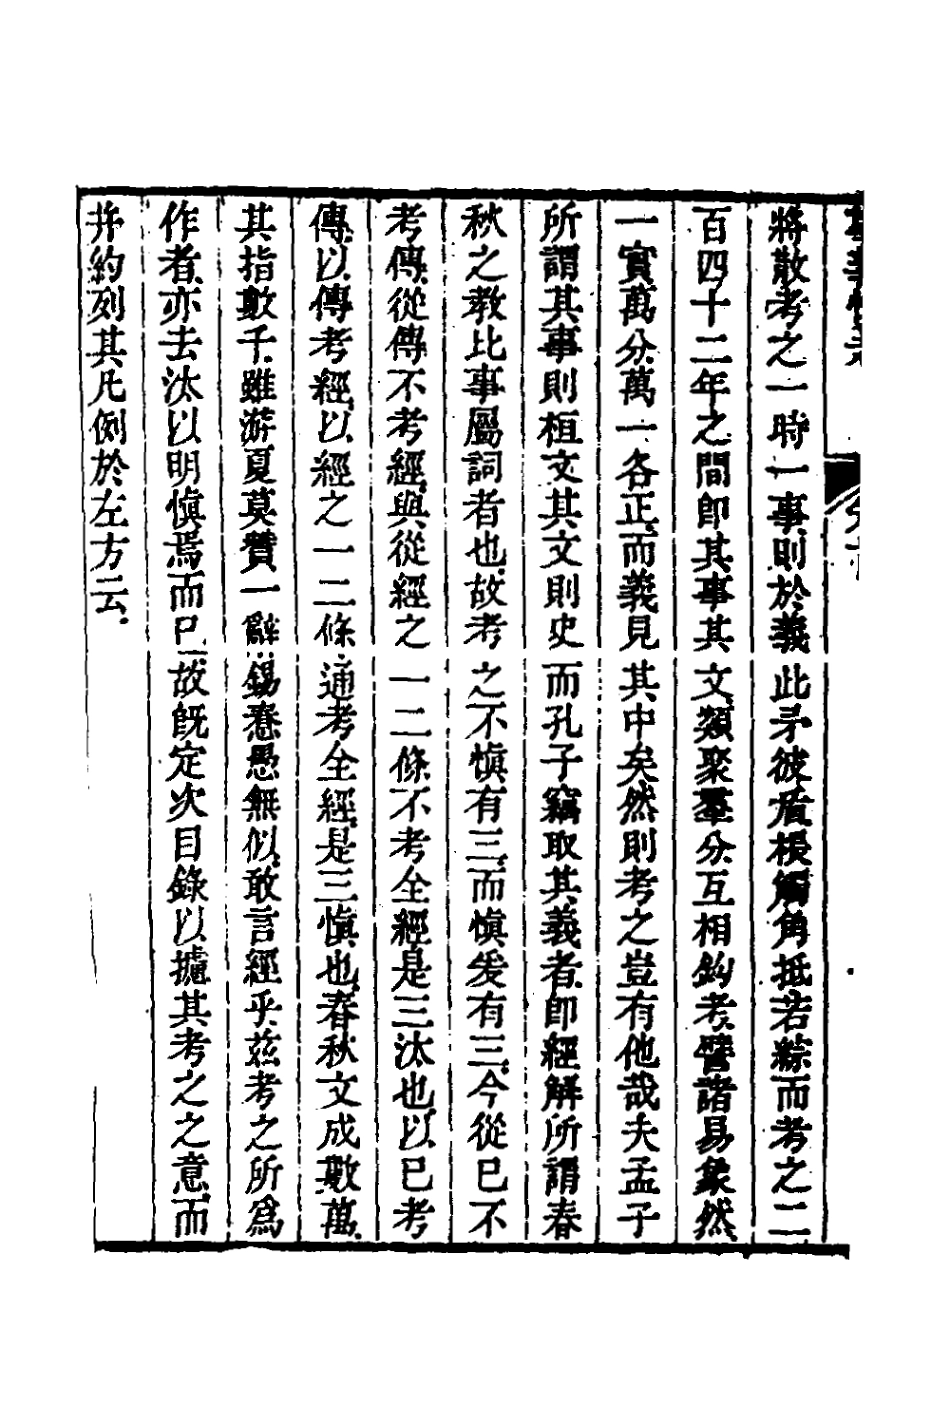 將散考之一時一事則於義此矛彼盾棖觸角抵若綜而考之二
百四十二年之間即其事其文類聚羣分互相鈎考譬諸易象然
一實萬分萬一各正而義見其中矣然則考之豈有他哉夫孟子
所謂其事則桓文其文則史而孔子竊取其義者即經解所謂春
秋之教比事屬詞者也故考之不慎有三而慎爰有三今從已不
考傳從傳不考經與從經之一二條不考全經是三汰也以已考
傳以傳考經以經之一二條通考全經是三慎也春秋文成數萬
其指數千雖游夏莫贊一辭錫惷愚無似敢言經乎茲考之所爲
作者亦去汰以明慎焉而已故既定次目錄以攄其考之之意而
并約列其凡例於左方云